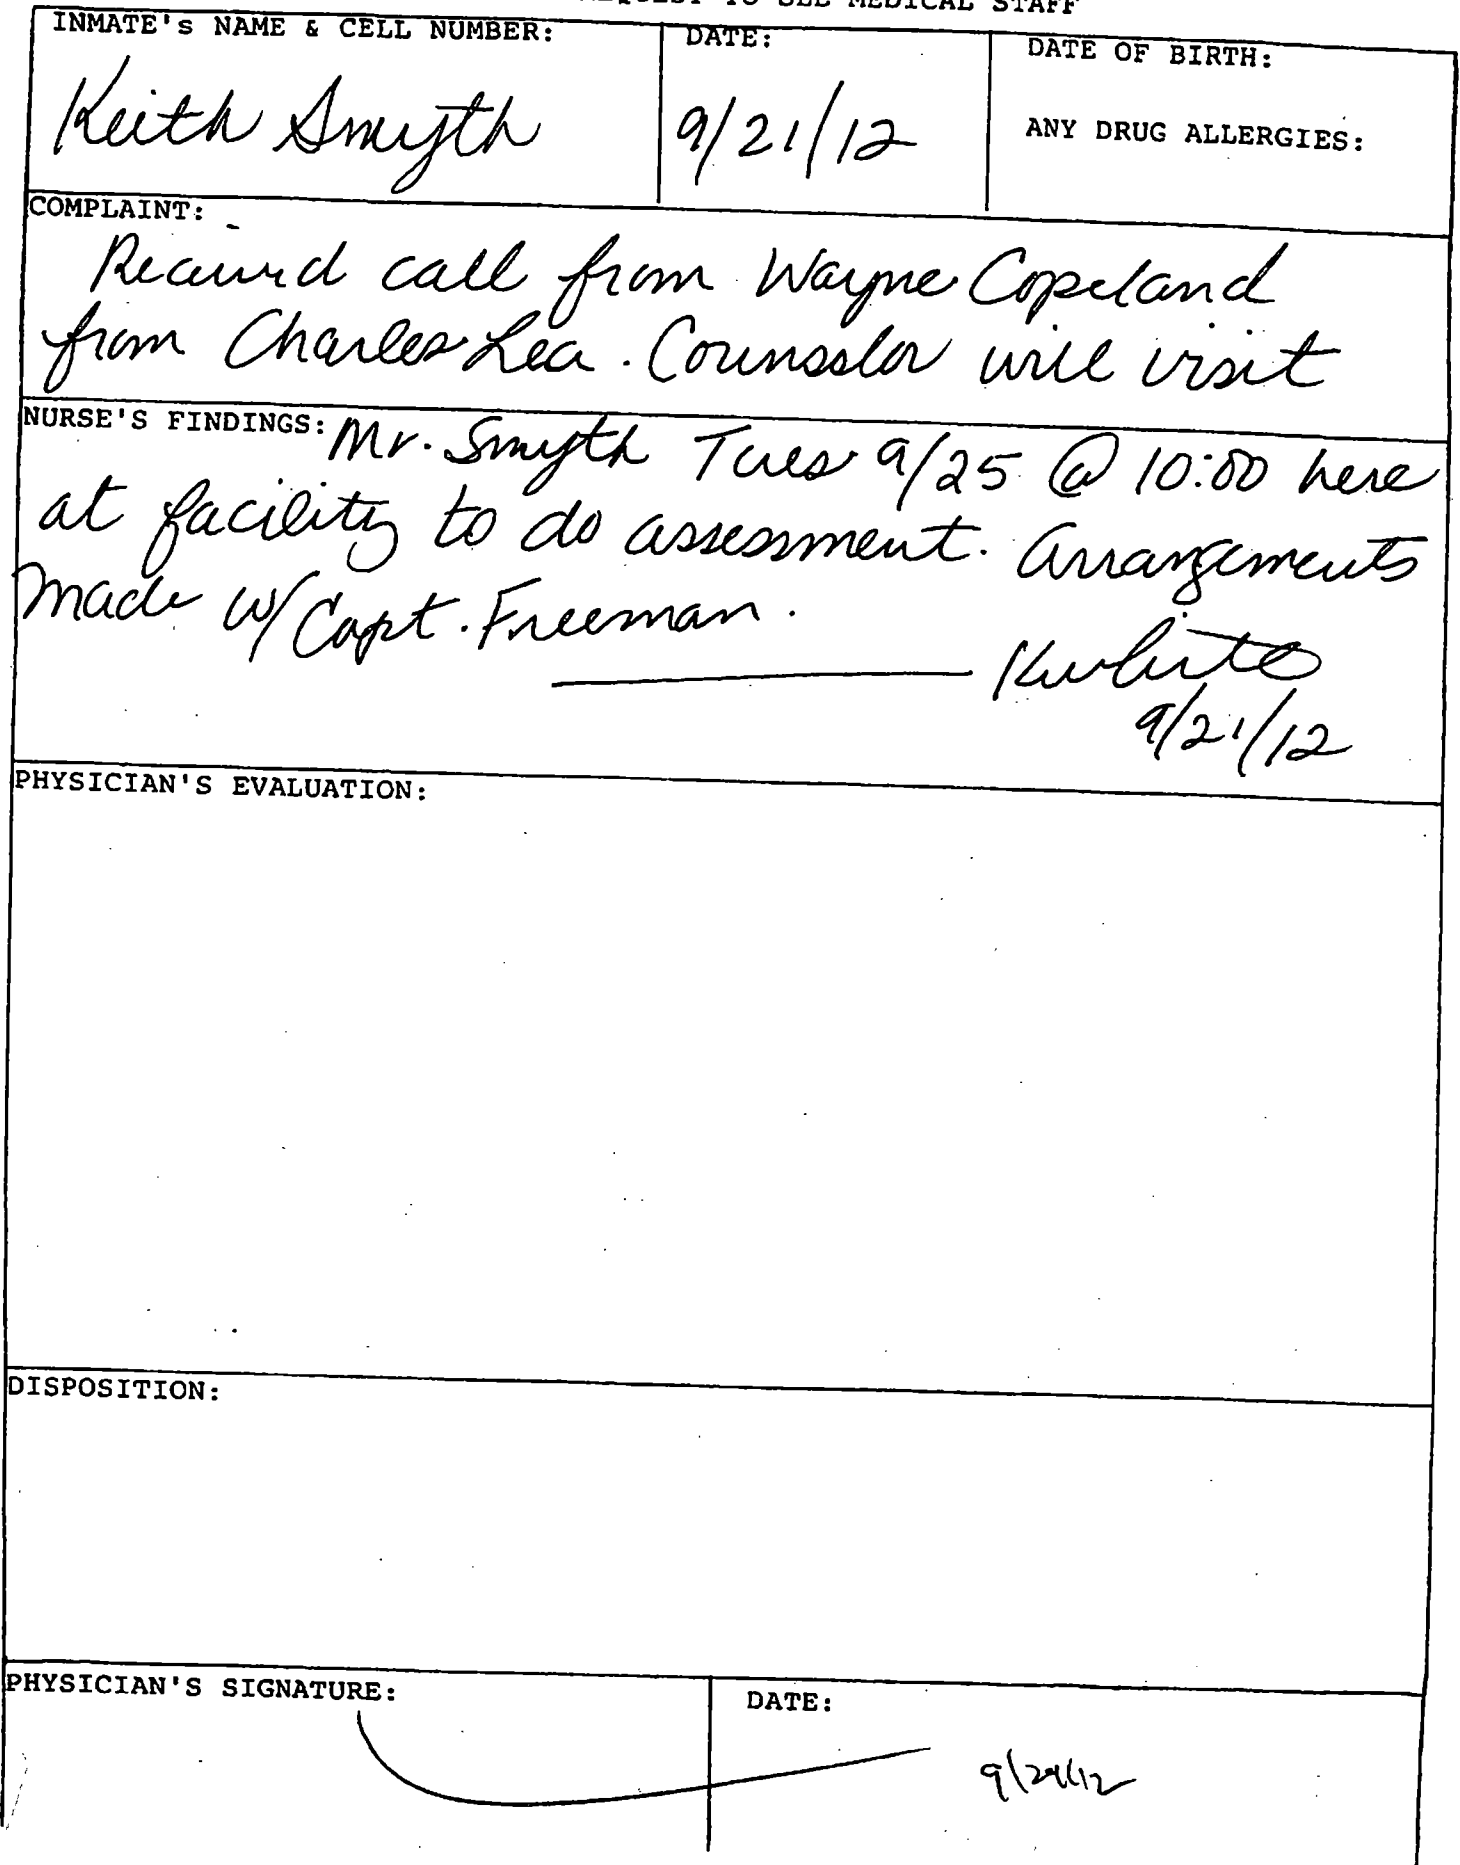 REQUEST TO SEE MEDICAL STAFF
INMATE's NAME & CELL NUMBER: DATE: DATE OF BIRTH:
Keith Smyth 9/21/12 ANY DRUG ALLERGIES:
COMPLAINT:
Received call from Wayne Copeland
from Charles Lea. Counsslor will visit
NURSE'S FINDINGS: Mr. Smyth Tues 9/25 @ 10:00 here
at facility to do assessment. Arrangements
made w/ Capt. Freeman.
KWhite
9/21/12
PHYSICIAN'S EVALUATION:
DISPOSITION:
PHYSICIAN'S SIGNATURE: DATE: